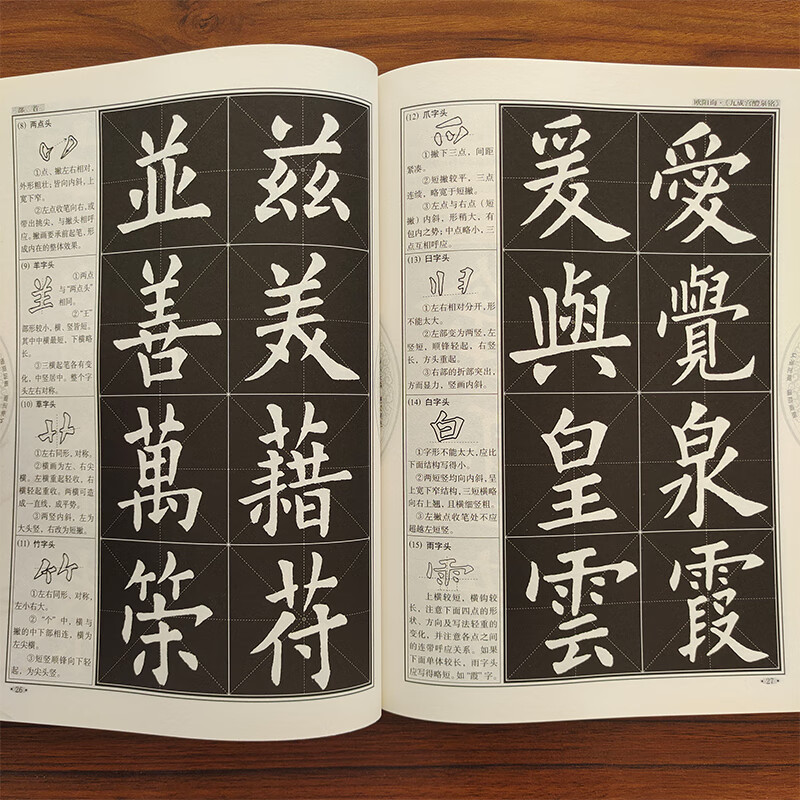 部首
(8) 两点头
①点、撇左右相对，
外形粗壮；皆向内斜，上
宽下窄。
②左点收笔向右，或
带出挑尖，与撇头相呼
应，撇画要承前起笔，形
成内在的整体效果。
(9) 羊字头
①两点
与“两点头”
相同。
②“王”
部形较小，横、竖皆短，
其中中横最短，下横略
长。
③三横起笔各有变
化，中竖居中。整个字
头左右对称。
(10) 草字头
①左右同形，对称。
②横画为左、右尖
横。左横重起轻收，右
横轻起重收。两横可造
成一直线，成平势。
③两竖内斜，左为
大头竖，右改为短撇。
(11) 竹字头
①左右同形、对称，
左小右大。
②“个”中，横与
撇的中下部相连，横为
左尖横。
③短竖顺锋向下轻
起，为尖头竖。
並 茲
善 美
萬 藉
筞 苻
26
欧阳询·《九成宫醴泉铭》
(12) 爪字头
①撇下三点，间距
紧凑。
②短撇较平，三点
连续，略宽于短撇。
③左点与右点（短
撇）内斜，形稍大，有
包内之势；中点略小，三
点互相呼应。
(13) 臼字头
①左右相对分开，形
不能太大。
②左部变为两竖，左
竖短，顺锋轻起，右竖
长，方头重起。
③右部的折部突出，
方而显力，竖画内斜。
(14) 白字头
①字形不能太大，应比
下面结构写得小。
②两短竖均向内斜，呈
上宽下窄结构，三短横略
向右上翘，且横细竖粗。
③左撇点收笔处不应
超越左短竖。
(15) 雨字头
上横较短，横钩较
长，注意下面四点的形
状、方向及写法轻重的
变化，并注意各点之间
的连带呼应关系。如果
下面单体较长，雨字头
应写得略短。如“霞”字。
爰 愛
與 覺
皇 泉
雲 霞
27